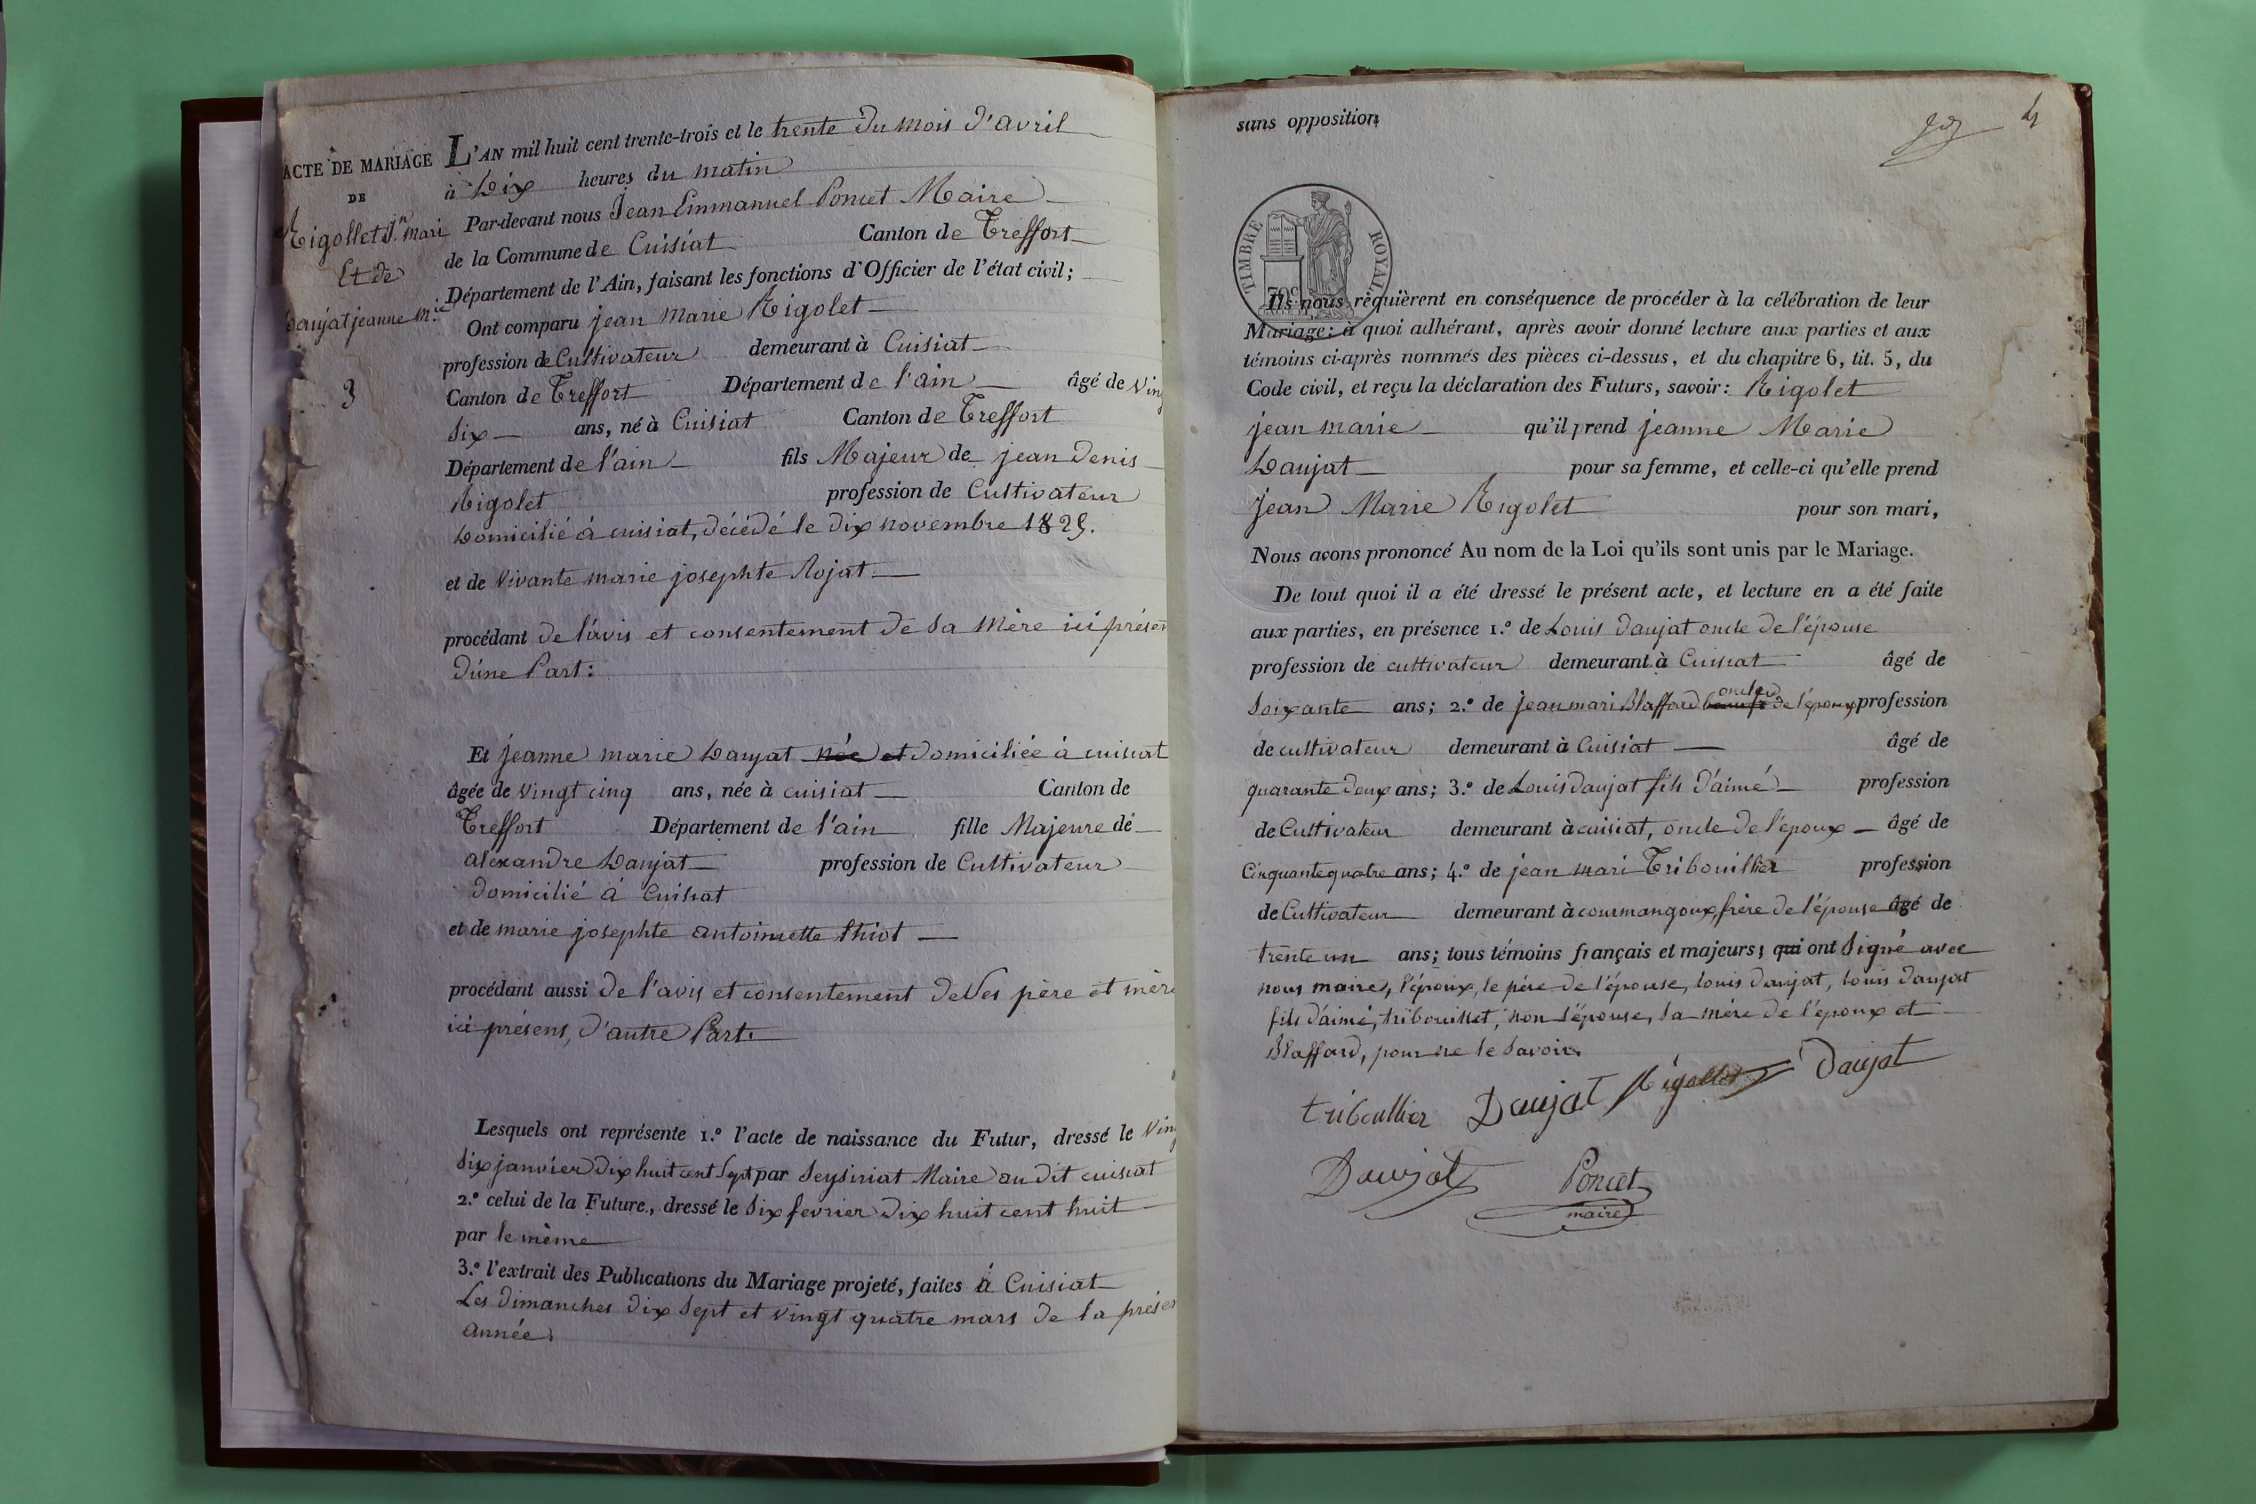 ACTE DE MARIAGE
DE
Rigollet Jn mari
Et de
Daujat jeanne m.ie
3
L'AN mil huit cent trente-trois et le trente du mois d'avril
à Dix heures du matin
Par-devant nous Jean Emmanuel Poncet Maire
de la Commune de Cuisiat Canton de Treffort
Département de l'Ain, faisant les fonctions d'Officier de l'état civil;
Ont comparu jean marie Rigolet
profession de Cultivateur demeurant à Cuisiat
Canton de Treffort Département de l'ain âgé de ving
six ans, né à Cuisiat Canton de Treffort
Département de l'ain fils Majeur de jean denis
Rigolet profession de Cultivateur
Domicilié à cuisiat, décédé le dix novembre 1829.
et de vivante marie josephte Rojat
procédant de l'avis et consentement de sa Mère ici présen
d'une Part:
Et jeanne marie Daujat née et domiciliée à cuisiat
âgée de vingt cinq ans, née à cuisiat Canton de
Treffort Département de l'ain fille Majeure de
alexandre Daujat profession de Cultivateur
domicilié à Cuisiat
et de marie josephte antoinette thiot
procédant aussi de l'avis et consentement de ses père et mère
ici présens, d'autre Part.
Lesquels ont représente 1.º l'acte de naissance du Futur, dressé le Ving
six janvier dix huit cent sept par Seysiriat Maire au dit cuisiat
2.º celui de la Future, dressé le six fevrier dix huit cent huit
par le même
3.º l'extrait des Publications du Mariage projeté, faites à Cuisiat
Les dimanches dix sept et vingt quatre mars de la présen
année.
sans opposition
4
TIMBRE ROYAL
70c
Ils nous requièrent en conséquence de procéder à la célébration de leur
Mariage: à quoi adhérant, après avoir donné lecture aux parties et aux
témoins ci-après nommés des pièces ci-dessus, et du chapitre 6, tit. 5, du
Code civil, et reçu la déclaration des Futurs, savoir: Rigolet
jean marie qu'il prend jeanne Marie
Daujat pour sa femme, et celle-ci qu'elle prend
Jean Marie Rigolet pour son mari,
Nous avons prononcé Au nom de la Loi qu'ils sont unis par le Mariage.
De tout quoi il a été dressé le présent acte, et lecture en a été faite
aux parties, en présence 1.º de Louis daujat oncle de l'épouse
profession de cultivateur demeurant à Cuisiat âgé de
soixante ans; 2.º de jean mari Blaffard oncle de l'époux profession
de cultivateur demeurant à Cuisiat âgé de
quarante deux ans; 3.º de Louis daujat fils d'aimé profession
de Cultivateur demeurant à cuisiat, oncle de l'époux âgé de
Cinquante quatre ans; 4.º de jean mari Tribouillier profession
de Cultivateur demeurant à courmangoux, frère de l'épouse âgé de
trente un ans; tous témoins français et majeurs; qui ont Signé avec
nous maire, l'époux, le père de l'épouse, louis daujat, louis daujat
fils d'aimé, tribouillet, non l'épouse, la mère de l'époux et
Blaffard, pour ne le savoir.
triboullier Daujat Rigollet Daujat
Daujat Poncet
maire